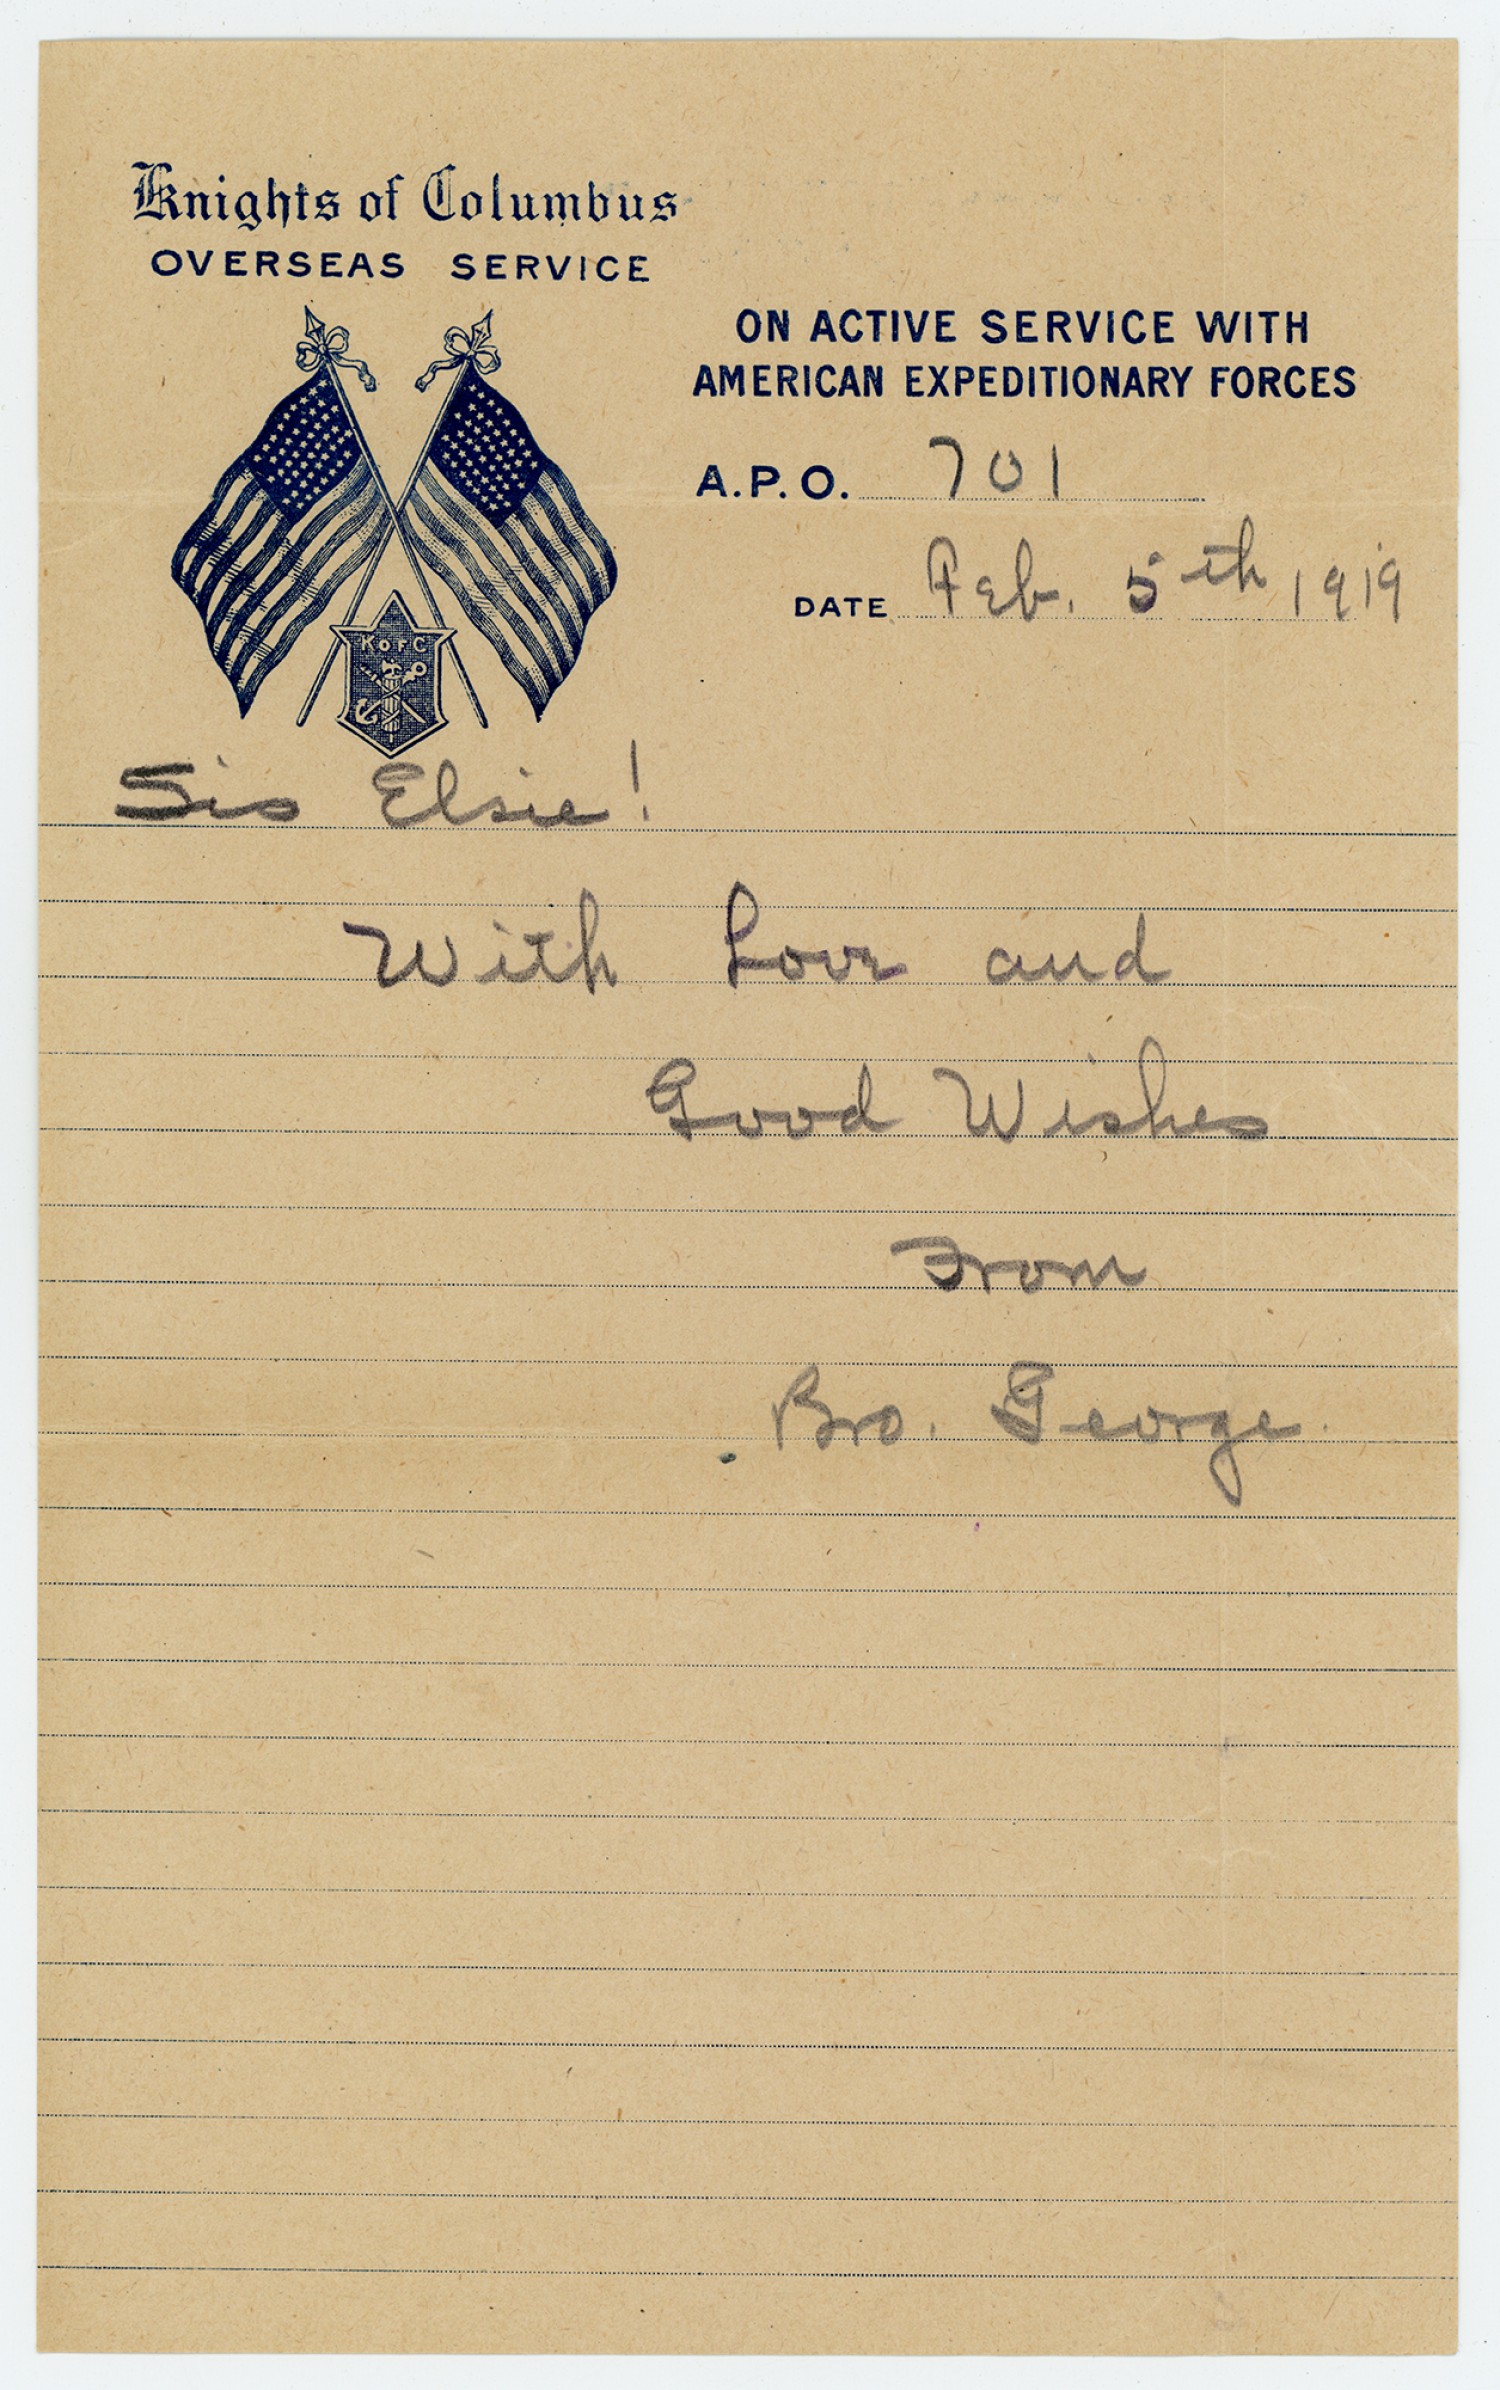 Knights of Columbus
OVERSEAS SERVICE
ON ACTIVE SERVICE WITH
AMERICAN EXPEDITIONARY FORCES
A.P.O. 701
DATE Feb. 5th 1919
K of C
Sis Elsie!
With Love and
Good Wishes
From
Bro. George.